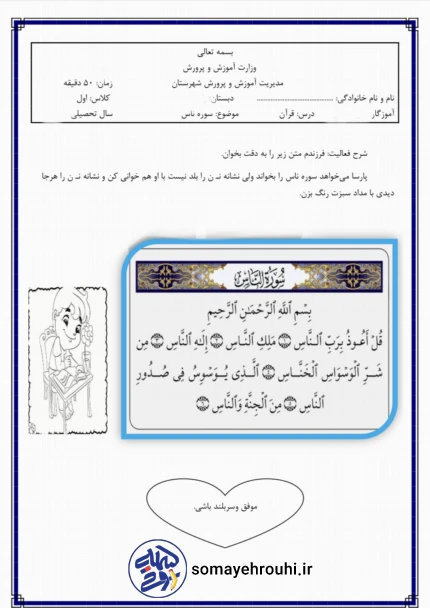 بسمه تعالی
وزارت آموزش و پرورش
مدیریت آموزش و پرورش شهرستان
زمان: ۵۰ دقیقه
نام و نام خانوادگی: ........................................ دبستان کلاس: اول
آموزگار درس: قرآن موضوع: سوره ناس سال تحصیلی
شرح فعالیت: فرزندم متن زیر را به دقت بخوان.
پارسا می‌خواهد سوره ناس را بخواند ولی نشانه نـ ن را بلد نیست با او هم خوانی کن و نشانه نـ ن را هرجا
دیدی با مداد سبزت رنگ بزن.
سُورَةُ النَّاسِ
بِسْمِ ٱللَّهِ ٱلرَّحْمَٰنِ ٱلرَّحِيمِ
قُلْ أَعُوذُ بِرَبِّ ٱلنَّاسِ ۝١ مَلِكِ ٱلنَّاسِ ۝٢ إِلَٰهِ ٱلنَّاسِ ۝٣ مِن
شَرِّ ٱلْوَسْوَاسِ ٱلْخَنَّاسِ ۝٤ ٱلَّذِى يُوَسْوِسُ فِى صُدُورِ
ٱلنَّاسِ ۝٥ مِنَ ٱلْجِنَّةِ وَٱلنَّاسِ ۝٦
موفق وسربلند باشی.
somayehrouhi.ir